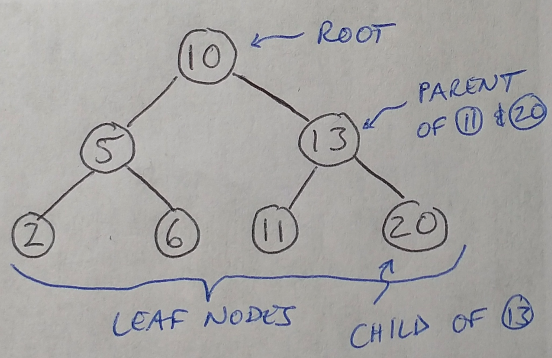 10
ROOT
PARENT
OF 11 & 20
5
13
2
6
11
20
LEAF NODES
CHILD OF 13